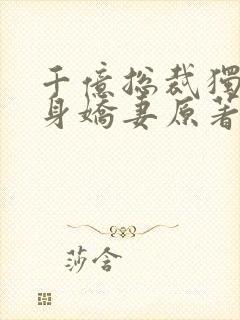 千億总裁獨
身嬌妻原著
莎含